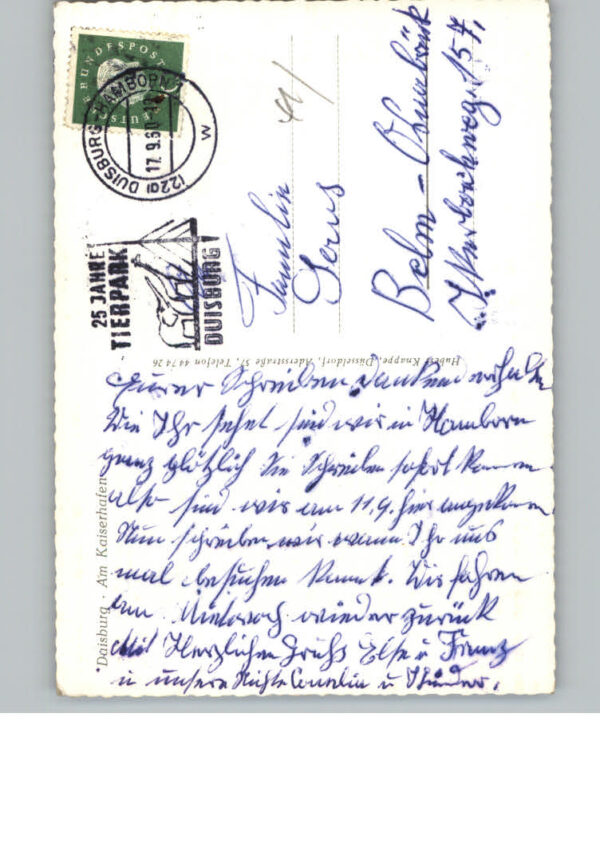 DEUTSCHE BUNDESPOST
(22a) DUISBURG-HAMBORN 1
17. 9. 60
W
25 JAHRE
TIERPARK
DUISBURG
Familie
Belm - Osnabrück
157,
Hubert Knappe, Düsseldorf, Adersstraße 57, Telefon 44 74 26
Duisburg · Am Kaiserhafen
Eurer Schreiben dankend erhalten
Wie Ihr sehet sind wir in Hamborn
ganz plötzlich Sie Schreiben sofort kommen
also sind wir am 11.9. hier angekommen
Nun schreiben wir wann Ihr uns
mal besuchen kannt. Wir fahren
am Mittwoch wieder zurück
Mit Herzlichen Grüße Else u Franz
u unsere Nichte u Kinder.